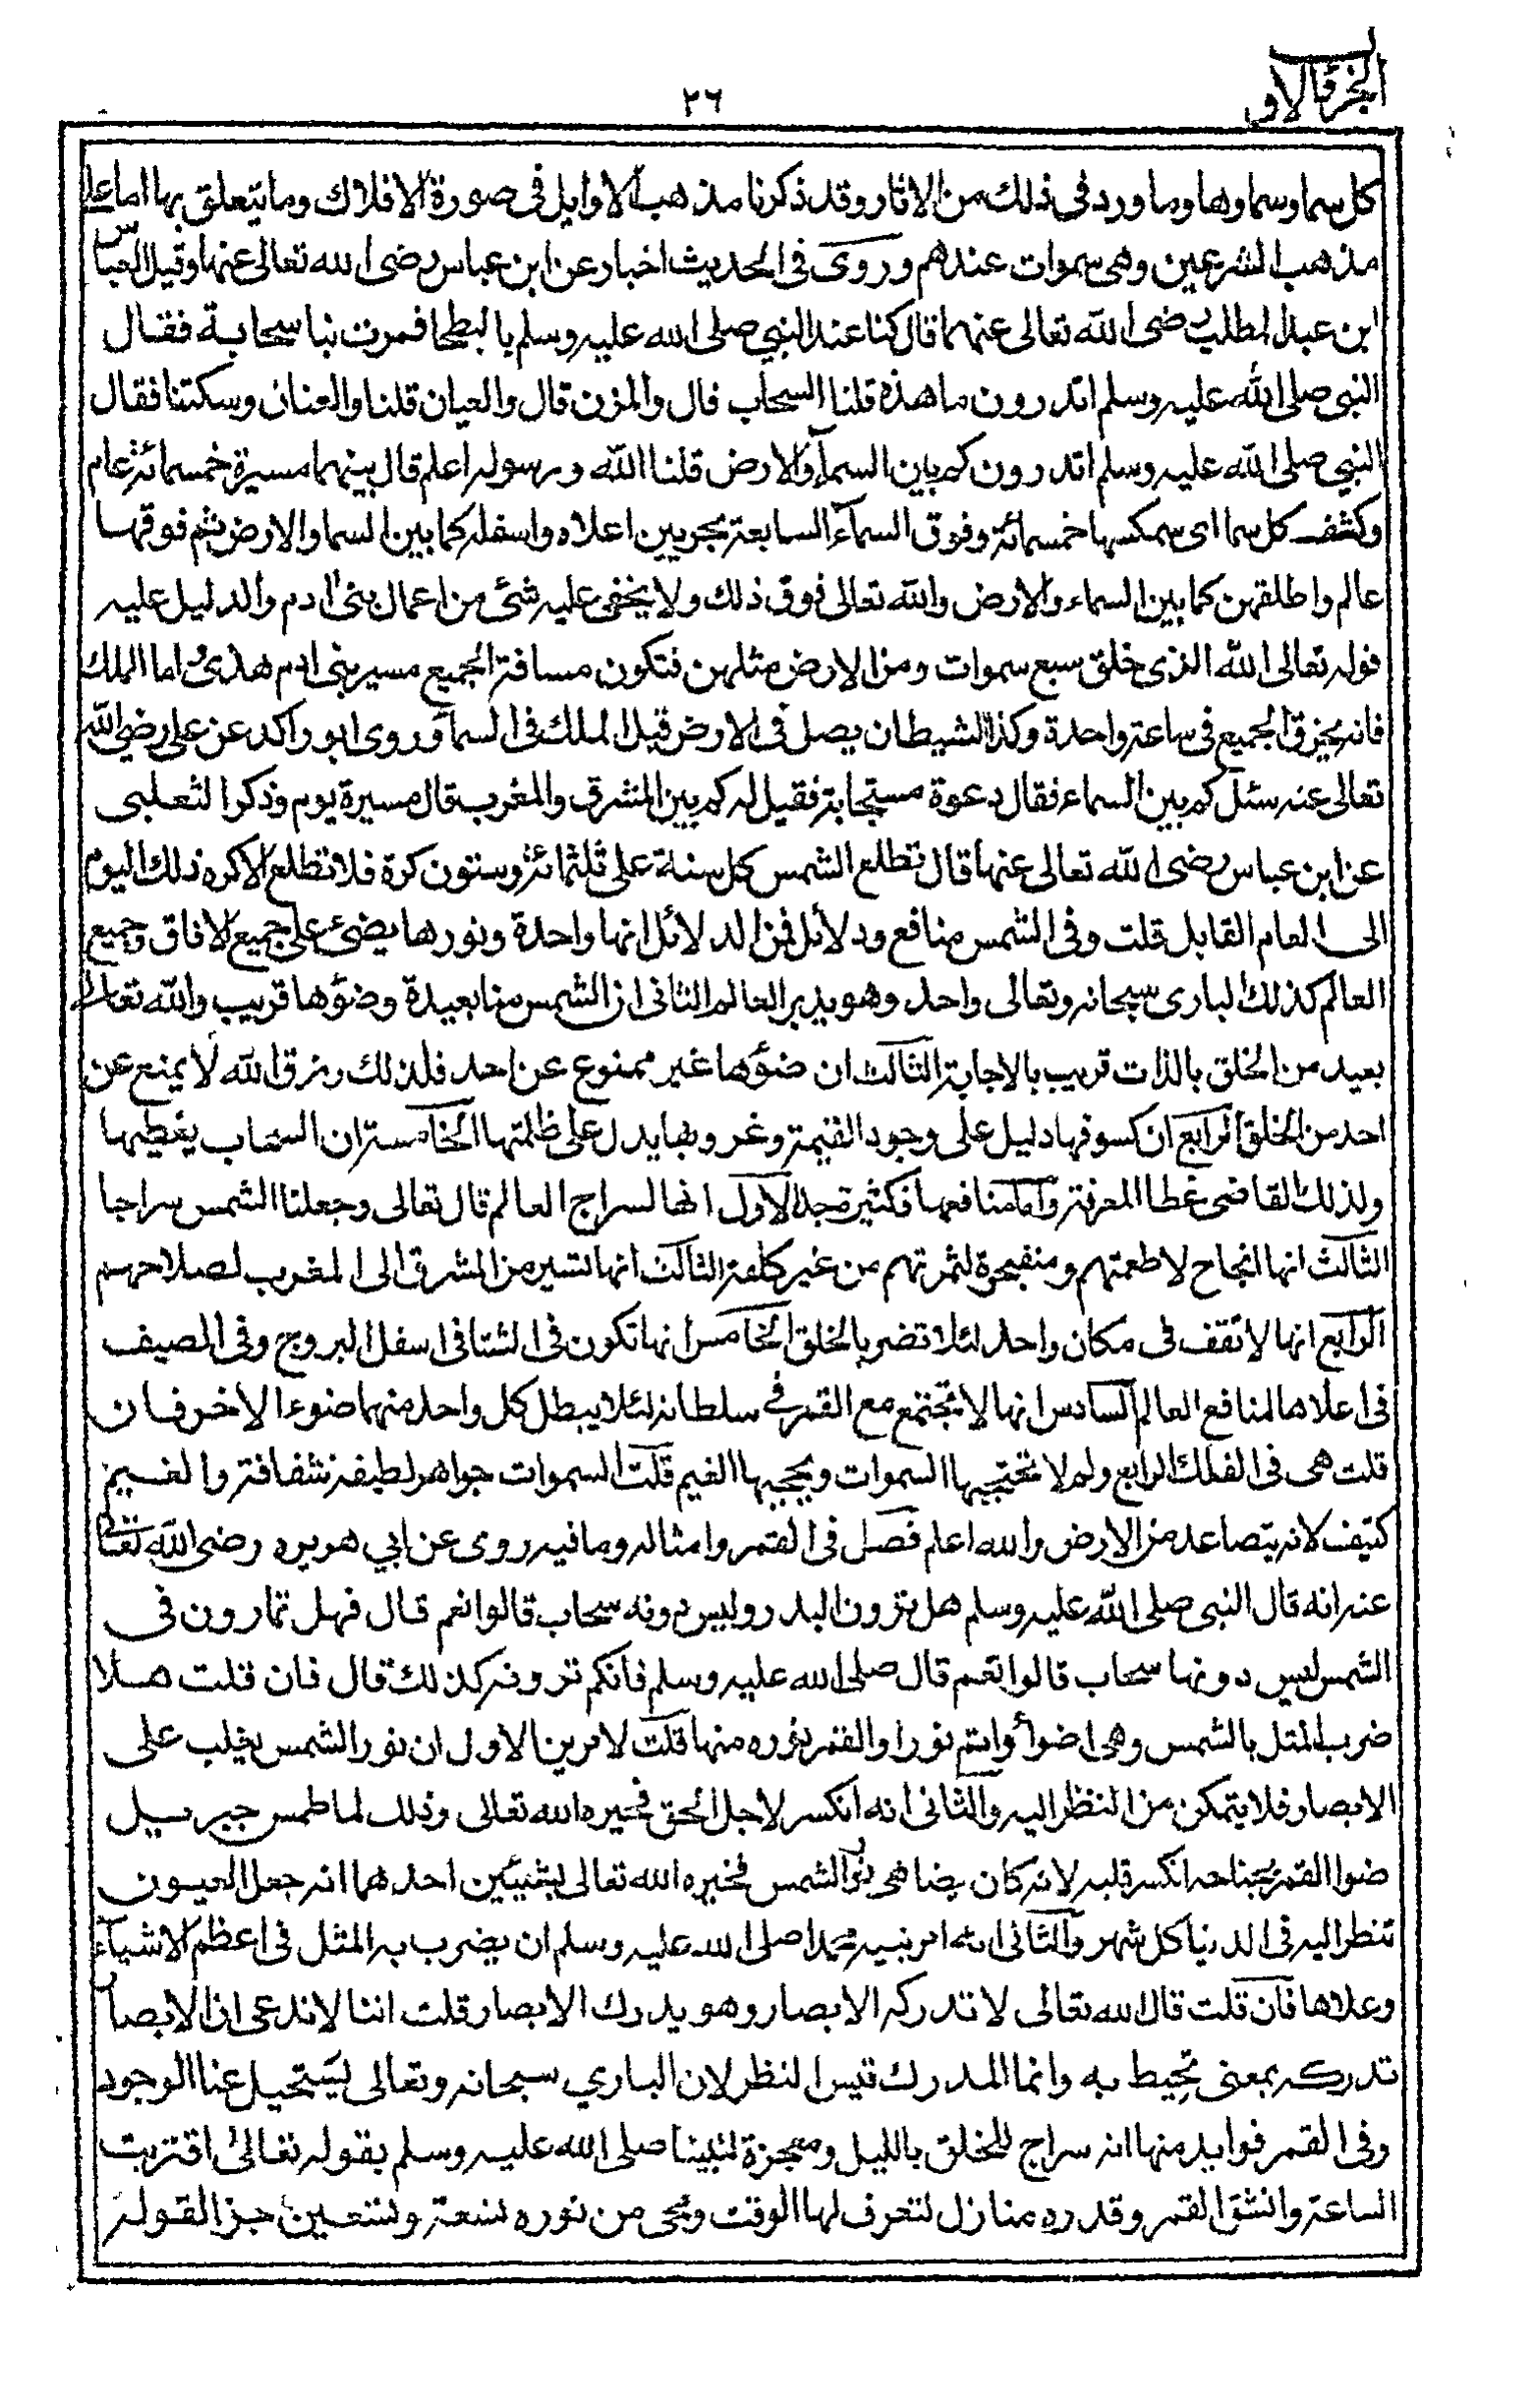 الجزء الاول
٢٦
كل سما وسماوها وما ورد فى ذلك من الاثار وقد ذكرنا مذهب الاوايل فى صورة الافلاك وما يتعلق بها اما على
مذهب الشرعيين وهى سموات عندهم وروى فى الحديث اخبار عن ابن عباس رضى الله تعالى عنها وقيل العباس
ابن عبد المطلب رضى الله تعالى عنهما قال كنا عند النبي صلى الله عليه وسلم بالبطحا فمرت بنا سحابة فقال
النبى صلى الله عليه وسلم اتدرون ما هذه قلنا السحاب فال والمزن قال والعيان قلنا والعنان وسكتنا فقال
النبي صلى الله عليه وسلم اتدرون كم بين السمآء والارض قلنا الله ورسوله اعلم قال بينهما مسيرة خمسمائة عام
وكثف كل سما اى سمكسها خمسمائة وفوق السمآء السابعة بحر بين اعلاه واسفله كما بين السما والارض ثم فوقها
عالم واطلقهن كما بين السماء والارض والله تعالى فوق ذلك ولا يخفى عليه شئ من اعمال بنى ادم والدليل عليه
قوله تعالى الله الذى خلق سبع سموات ومن الارض مثلهن فتكون مسافة الجميع مسير بنى ادم هذى واما الملك
فانه يخرق الجميع فى ساعة واحدة وكذا الشيطان يصل فى الارض قبل الملك فى السمآ وروى ابو راكد عن على رضي الله
تعالى عنه سئل كم بين السماء فقال دعوة مستجابة فقيل له كم بين المشرق والمغرب قال مسيرة يوم وذكر الثعلبى
عن ابن عباس رضى الله تعالى عنها قال تطلع الشمس كل سنة على ثلثمائة وستون كرة فلا تطلع الاكره ذلك اليوم
الى العام القابل قلت وفى الشمس منافع ودلائل فمن الدلائل انها واحدة ونورها يضئ على جميع الافاق وجميع
العالم كذلك البارى سبحانه وتعالى واحد وهو يدبر العالم الثانى ان الشمس منا بعيدة وضؤها قريب والله تعالى
بعيد من الخلق بالذات قريب بالاجابة الثالث ان ضؤها غير ممنوع عن احد فلذلك رزق الله لا يمنع عن
احد من الخلق الرابع ان كسوفها دليل على وجود القيمة وغروبها يدل على ظلمتها الخامسة ان السحاب يغطيها
ولذلك القاضى غطا المعرفة واما منافعها فكثيرة جدا الاول انها لسراج العالم قال تعالى وجعلنا الشمس سراجا
الثالث انها انجاح لاطعمتهم ومنفجرة لثمرتهم من غير كلفة الثالث انها تسير من المشرق الى المغرب لصلاحهم
الرابع انها لا تقف فى مكان واحد لئلا تضر بالخلق الخامس انها تكون فى الشتا فى اسفل البروج وفى المصيف
فى اعلاها لمنافع العالم السادس انها لا تجتمع مع القمر فى سلطانه لئلا يبطل كل واحد منهما ضوء الاخر فان
قلت هى فى الفلك الرابع ولم لا تحتجبها السموات ويحجبها الغيم قلت السموات جواهر لطيفة شفافة والغيم
كثيف لانه يتصاعد من الارض والله اعلم فصل فى القمر وامثاله وما فيه روى عن ابي هريره رضى الله تعالى
عنه انه قال النبى صلى الله عليه وسلم هل ترون البدر وليس دونه سحاب قالوا نعم قال فهل تمارون فى
الشمس ليس دونها سحاب قالوا نعم قال صلى الله عليه وسلم فانكم ترونه كذلك قال فان قلت هلا
ضرب المثل بالشمس وهى اضوأ واتم نورا والقمر نوره منها قلت لامرين الاول ان نور الشمس يغلب على
الابصار فلا يتمكن من النظر اليه والثانى انه انكسر لاجل الحق فجبره الله تعالى وذلك لما طمس جبرييل
ضوا القمر بجناحه انكسر قلبه لانه كان يضاهى نور الشمس فجبره الله تعالى بشيئين احدهما انه جعل العيون
تنظر اليه فى الدنيا كل شهر والثانى انه امر نبيه محمدا صلى الله عليه وسلم ان يضرب به المثل فى اعظم الاشيآء
وعلاها فان قلت قال الله تعالى لا تدركه الابصار وهو يدرك الابصار قلت اننا لا ندعى ان الابصار
تدركه بمعنى تحيط به وانما المدرك قيس النظر لان الباري سبحانه وتعالى يستحيل عنا الوجود
وفى القمر فوايد منها انه سراج للخلق بالليل ومعجزة لنبينا صلى الله عليه وسلم بقوله تعالى اقتربت
الساعة وانشق القمر وقدره منازل لتعرف لها الوقت ومحى من نوره تسعة وتسعين جزا لقوله